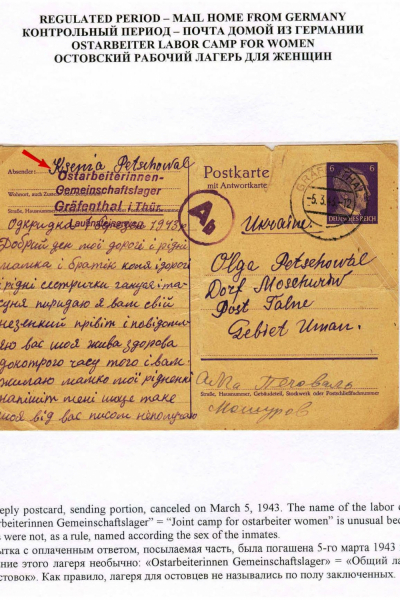 REGULATED PERIOD – MAIL HOME FROM GERMANY
КОНТРОЛЬНЫЙ ПЕРИОД – ПОЧТА ДОМОЙ ИЗ ГЕРМАНИИ
OSTARBEITER LABOR CAMP FOR WOMEN
ОСТОВСКИЙ РАБОЧИЙ ЛАГЕРЬ ДЛЯ ЖЕНЩИН
Absender: Ksenia Petschowal
Ostarbeiterinnen-
Wohnort, auch Zustell
Gemeinschaftslager
Straße, Hausnummer
Gräfenthal i. Thür.
Postkarte
mit Antwortkarte
6 6
DEUTSCHES REICH
-5.3.
Ab
Ukraine.
Olga Petschowal
Dorf Moschuriw
Post Talne
Gebiet Uman.
Straße, Hausnummer, Gebäudeteil, Stockwerk oder Postschließfachnummer
Мошуров
Одкридка 1943
Добрий ден мої дорогі і рідні
мамка і братік коля і дорогі
і рідні сестрички
я вам свій
привіт і повідом
вас шо я жива здорова
часу того і вам
жилаю мамко мої рідненкі
напішіт мені шоце таке
шо я від вас писом неполучаю
eply postcard, sending portion, canceled on March 5, 1943. The name of the labor c
rbeiterinnen Gemeinschaftslager” = “Joint camp for ostarbeiter women” is unusual bec
s were not, as a rule, named according the sex of the inmates.
ытка с оплаченным ответом, посылаемая часть, была погашена 5-го марта 1943
ние этого лагеря необычно: «Ostarbeiterinnen Gemeinschaftslager» = «Общий ла
стовок». Как правило, лагеря для остовцев не назывались по полу заключенных.